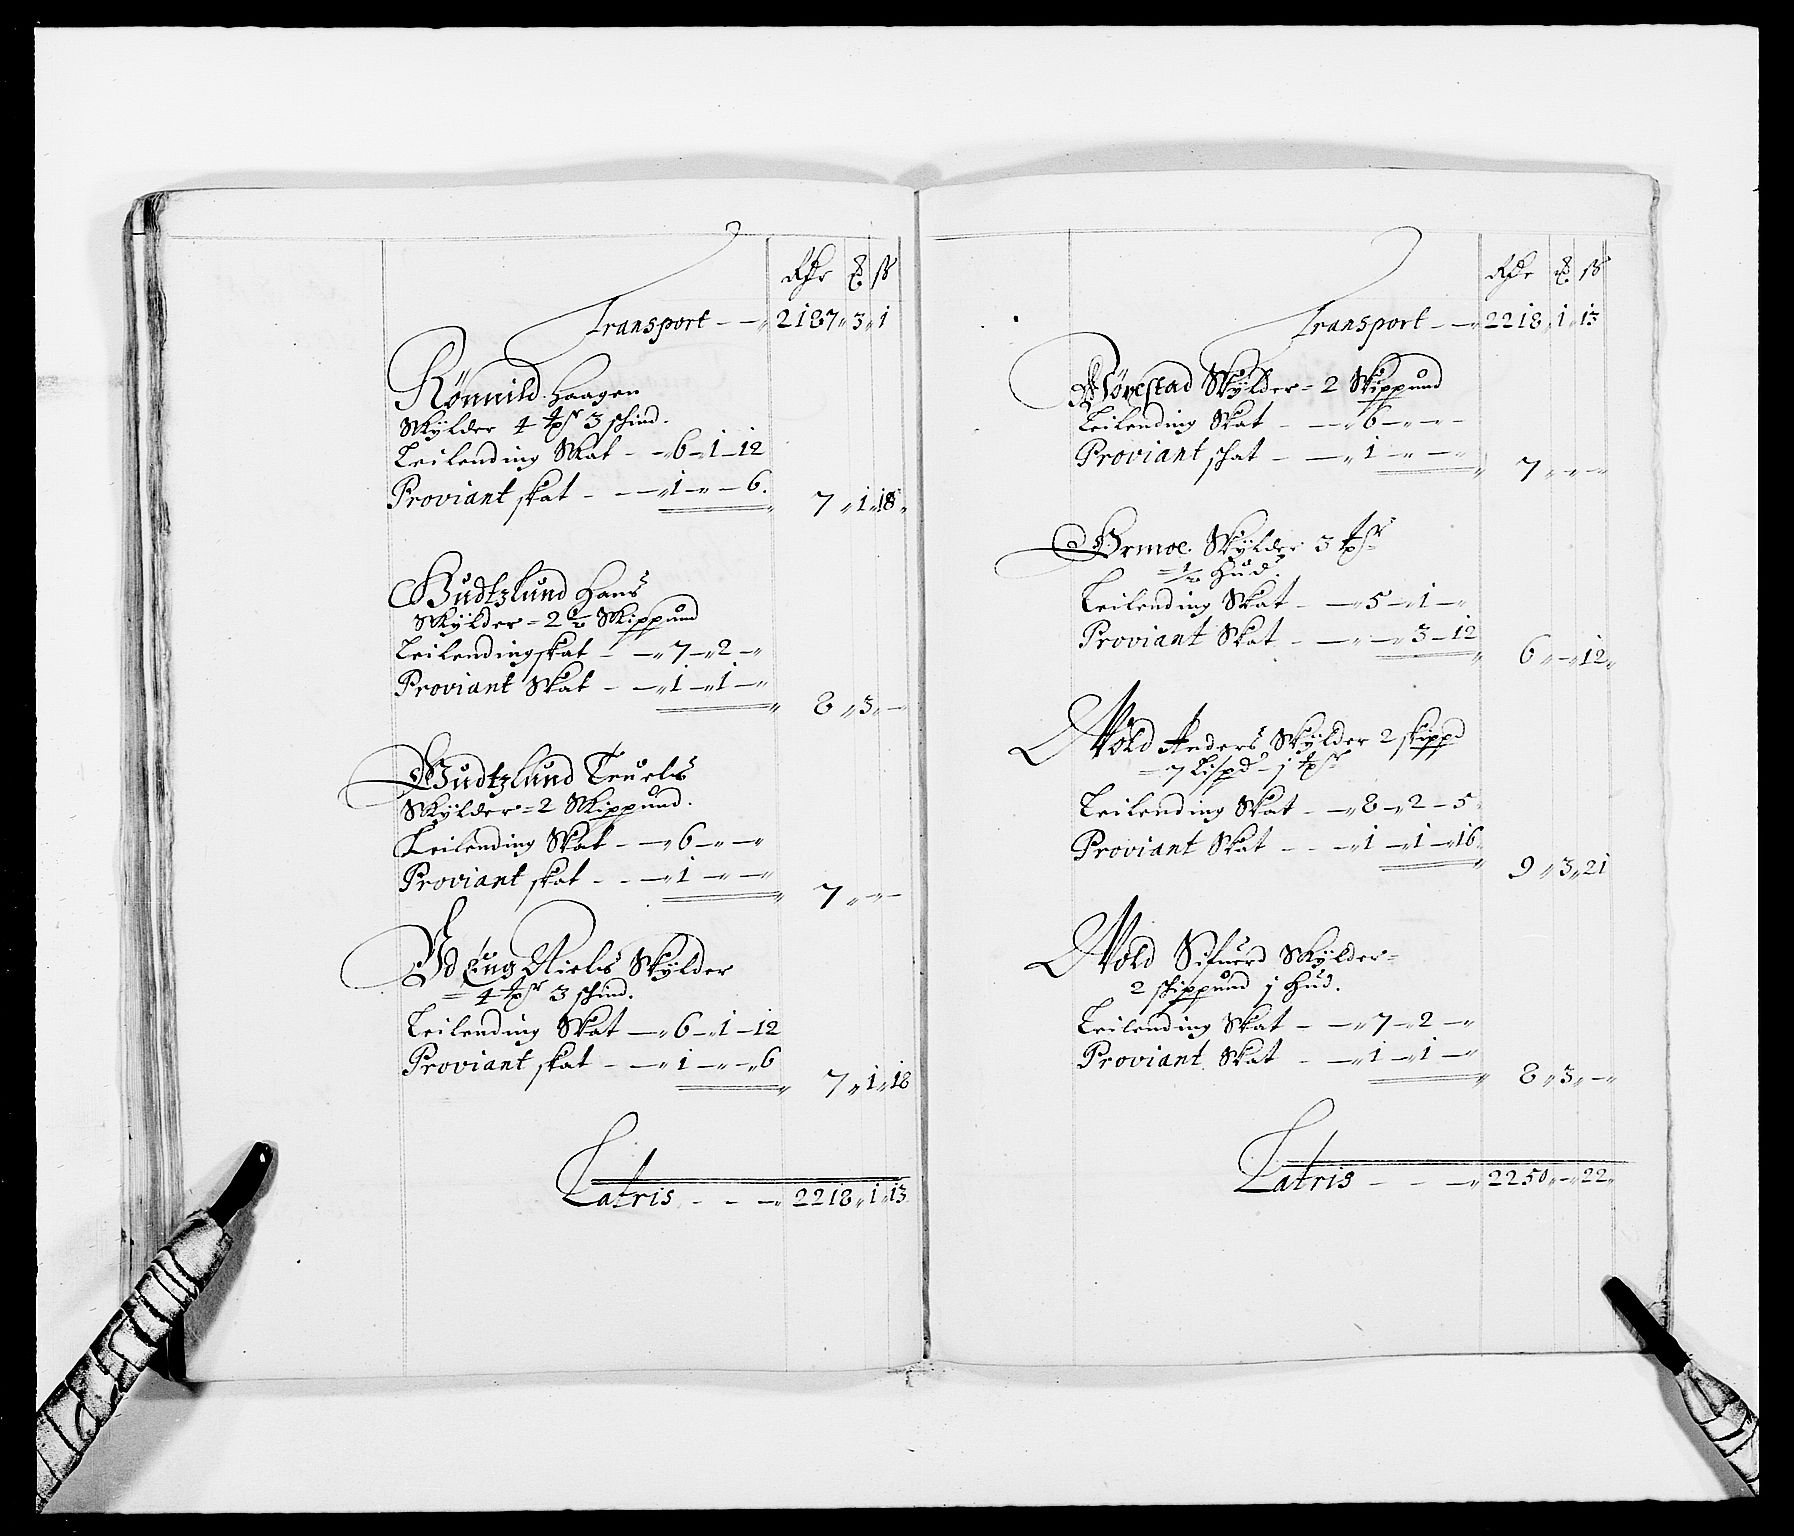 Rdr ß
Transport – – 2187 „ 3 „ 1
Rönnild Haagen
Skylder 4 tpr 3 schind.
Leilending Skat – – „ 6 „ 1 – 12
Proviant skat – – – „ 1 – „ – 6.
7 „ 1 „ 18 „
Gudtzlund Hans
Skylder = 2 ½ Skippund
Leilendingskat – – „ 7 – „ 2 – „
Proviant Skat – – „ 1 – „ 1 – „
8 „ 3 „ –
Gudtzlund Truels
Skylder = 2 Skippund.
Leilending Skat – – „ 6 – „ – „
Proviant skat – – – „ 1 – „ – „
7 „ – „ –
Niels Skylder
= 4 tpr 3 schind.
Leilending Skat – „ 6 – „ 1 – 12
Proviant skat – – „ 1 – „ – „ 6
7 „ 1 „ 18
Latris – – – „ 2218 „ 1 „ 13
Rdr ß
Transport – – „ 2218 „ 1 „ 13
Skylder = 2 Skippund
Leilending Skat – – „ 6 – „ – „ –
Proviant schat – – „ 1 – „ – „
7 „ – „ –
Ormoe Skylder 3 tpr
= ½ Hud.
Leilending Skat – – „ 5 – „ 1 – „
Proviant Skat – – „ – „ 3 – 12
6 „ – „ 12 „
Wold Anders Skylder 2 skippd
= 7 Lispd – j tpr
Leilending Skat – – „ 8 – „ 2 – 5
Proviant Skat – – – „ 1 – „ 1 – „ 16
9 „ 3 „ 21
Wold Sifuerd Skylder =
2 schippund j Hud.
Leilending Skat – – „ 7 – „ 2 – „
Proviant Skat – – „ 1 – „ 1 – „
8 „ 3 „ – „
Latris – – – „ 2250 „ – „ 22 „